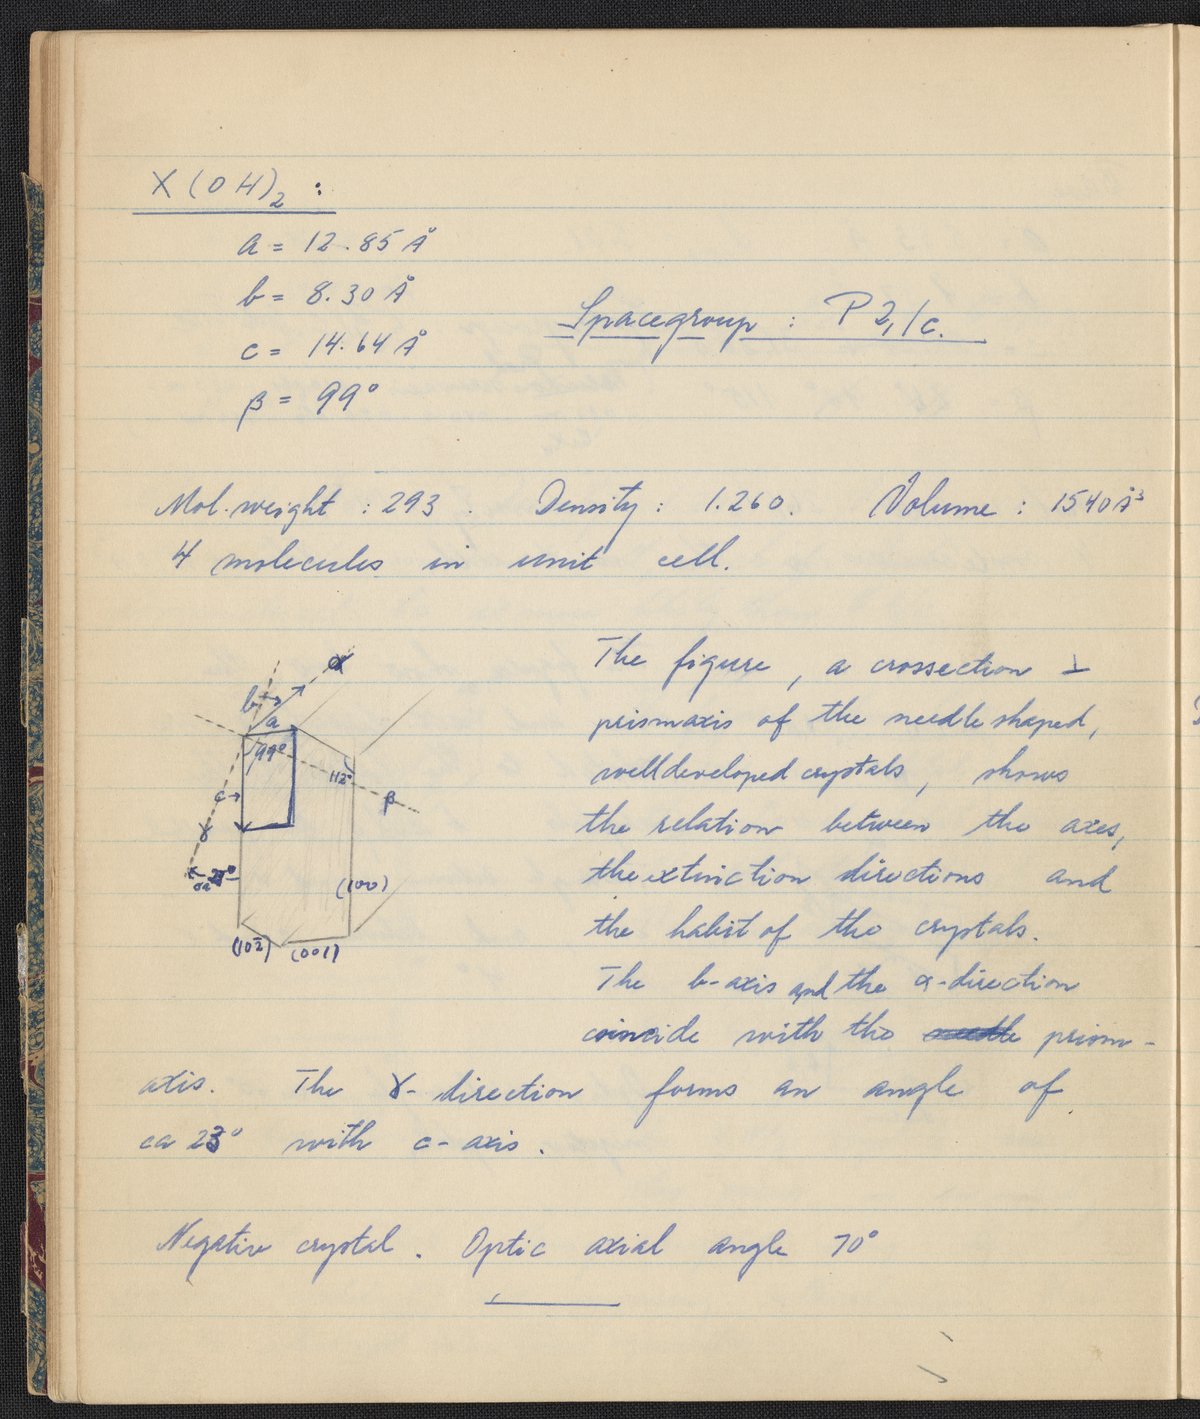 X(OH)₂ :
a = 12.85 Å
b = 8.30 Å
Spacegroup : P 2₁/c.
c = 14.64 Å
β = 99°
Mol. weight : 293 . Density : 1.260. Volume : 1540 Å³
4 molecules in unit cell.
α
b→
a
99°
112°
c→
β
γ
ca
(100)
(102̄) (001)
The figure, a crossection ⊥
prismaxis of the needle shaped,
welldeveloped crystals, shows
the relation between the axes,
the extinction directions and
the habit of the crystals.
The b-axis and the α-direction
coincide with the prism-
axis. The γ-direction forms an angle of
ca 23° with c-axis.
Negative crystal. Optic axial angle 70°